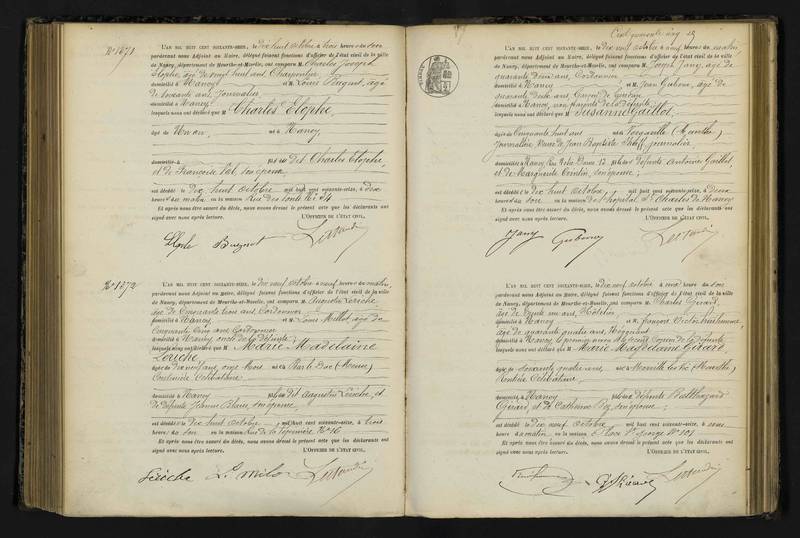 N° 1371
L'AN MIL HUIT CENT SOIXANTE-SEIZE, le dix huit octobre à trois heures du soir
pardevant nous Adjoint au Maire, délégué faisant fonctions d'officier de l'état civil de la ville
de Nancy, département de Meurthe-et-Moselle, ont comparu M. Charles Joseph
Elophe, âgé de vingt huit ans Charpentier
domicilié à Nancy et M. Louis
de soixante ans Journalier
domicilié à Nancy
lesquels nous ont déclaré que M Charles Elophe
âgé de né à Nancy,
domicilié à fils de dit Charles Elophe,
et de son épouse
est décédé le dix huit octobre mil huit cent soixante-seize, à dix
heures du matin en la maison Rue des Ponts N° 24
Et après nous être assuré du décès, nous avons dressé le présent acte que les déclarants ont
signé avec nous après lecture. L'OFFICIER DE L'ÉTAT CIVIL,
N° 1372
L'AN MIL HUIT CENT SOIXANTE-SEIZE, le dix neuf octobre à neuf heures du matin,
pardevant nous Adjoint au Maire, délégué faisant fonctions d'officier de l'état civil de la ville
de Nancy, département de Meurthe-et-Moselle, ont comparu M. Augustin Leriche
âgé de Cinquante trois ans Cordonnier
domicilié à Nancy et M. Louis Millot, âgé de
Cinquante cinq ans Cordonnier
domicilié à Nancy, oncle de la défunte
lesquels nous ont déclaré que M Marie Madelaine
Leriche
âgée de dix neuf ans, onze mois née à Bar le Duc (Meuse)
Couturière Célibataire
domiciliée à Nancy fille de dit Augustin Leriche, et
de défunte Jeanne son épouse,
est décédée le dix huit octobre mil huit cent soixante-seize, à trois
heures du soir en la maison Rue de la Pépinière N° 16
Et après nous être assuré du décès, nous avons dressé le présent acte que les déclarants ont
signé avec nous après lecture. L'OFFICIER DE L'ÉTAT CIVIL,
Leriche
L'AN MIL HUIT CENT SOIXANTE-SEIZE, le dix neuf octobre à neuf heures du matin,
pardevant nous Adjoint au Maire, délégué faisant fonctions d'officier de l'état civil de la ville
de Nancy, département de Meurthe-et-Moselle, ont comparu M. Joseph Jany, âgé de
quarante deux ans, Cordonnier
domicilié à Nancy et M. Jean Gubour, âgé de
ans, Garçon de
domicilié à Nancy, non parents de la défunte
lesquels nous ont déclaré que M Susanne Gaillot,
âgée de Cinquante huit ans née à (Meurthe)
Journalière, Veuve de Jean Baptiste journalier,
domiciliée à Nancy, Rue Notre Dame 17 fille de défunts Antoine Gaillot,
et de Marguerite son épouse;
est décédée le dix huit octobre mil huit cent soixante-seize, à deux
heures du soir en la maison de l'hôpital St Charles de Nancy
Et après nous être assuré du décès, nous avons dressé le présent acte que les déclarants ont
signé avec nous après lecture. L'OFFICIER DE L'ÉTAT CIVIL,
Jany
L'AN MIL HUIT CENT SOIXANTE-SEIZE, le dix neuf octobre à heures du matin,
pardevant nous Adjoint au Maire, délégué faisant fonctions d'officier de l'état civil de la ville
de Nancy, département de Meurthe-et-Moselle, ont comparu M. Charles Gérard,
âgé de trente un ans, Hôtelier
domicilié à Nancy et M. François Victor
âgé de quarante quatre ans, Négociant
domicilié à Nancy, le premier neveu et le second Cousin de la défunte
lesquels nous ont déclaré que M Marie Magdelaine Gérard
âgée de soixante quatre ans née à (Meurthe)
Rentière Célibataire
domiciliée à Nancy fille de défunts Balthazard
Gérard, et de Catherine son épouse;
est décédée le dix neuf octobre mil huit cent soixante-seize, à
heures du matin en la maison Place St George N° 101
Et après nous être assuré du décès, nous avons dressé le présent acte que les déclarants ont
signé avec nous après lecture. L'OFFICIER DE L'ÉTAT CIVIL,